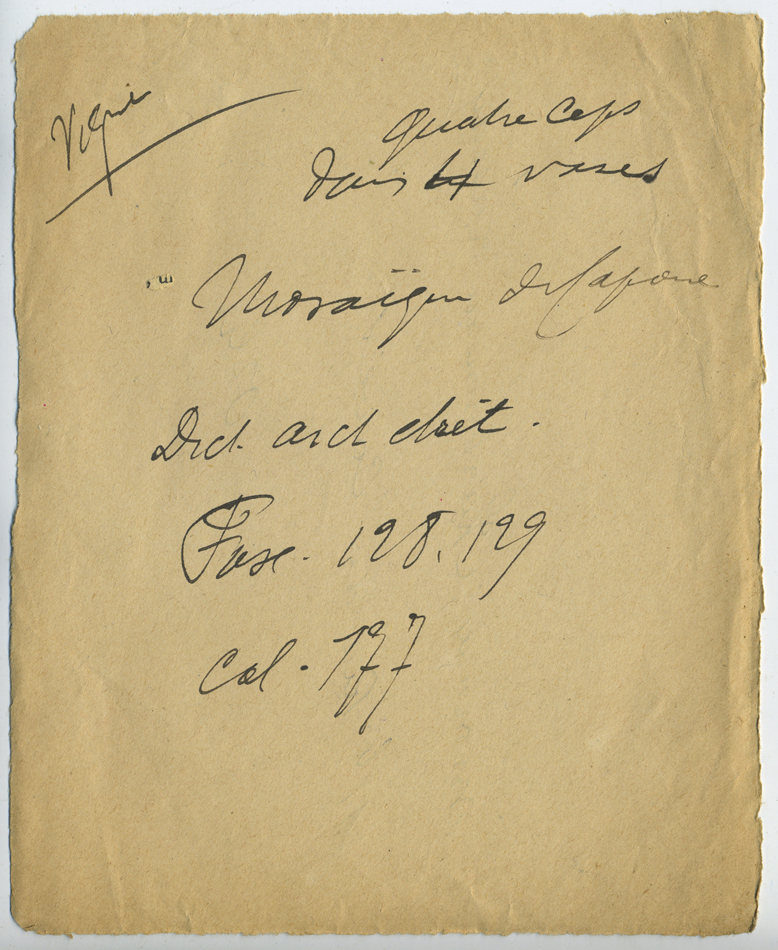 Vigne
quatre ceps
dans 4 vases
Mosaïque de Capoue
Dict. arch chrét.
Fasc. 128. 129
Col. 177